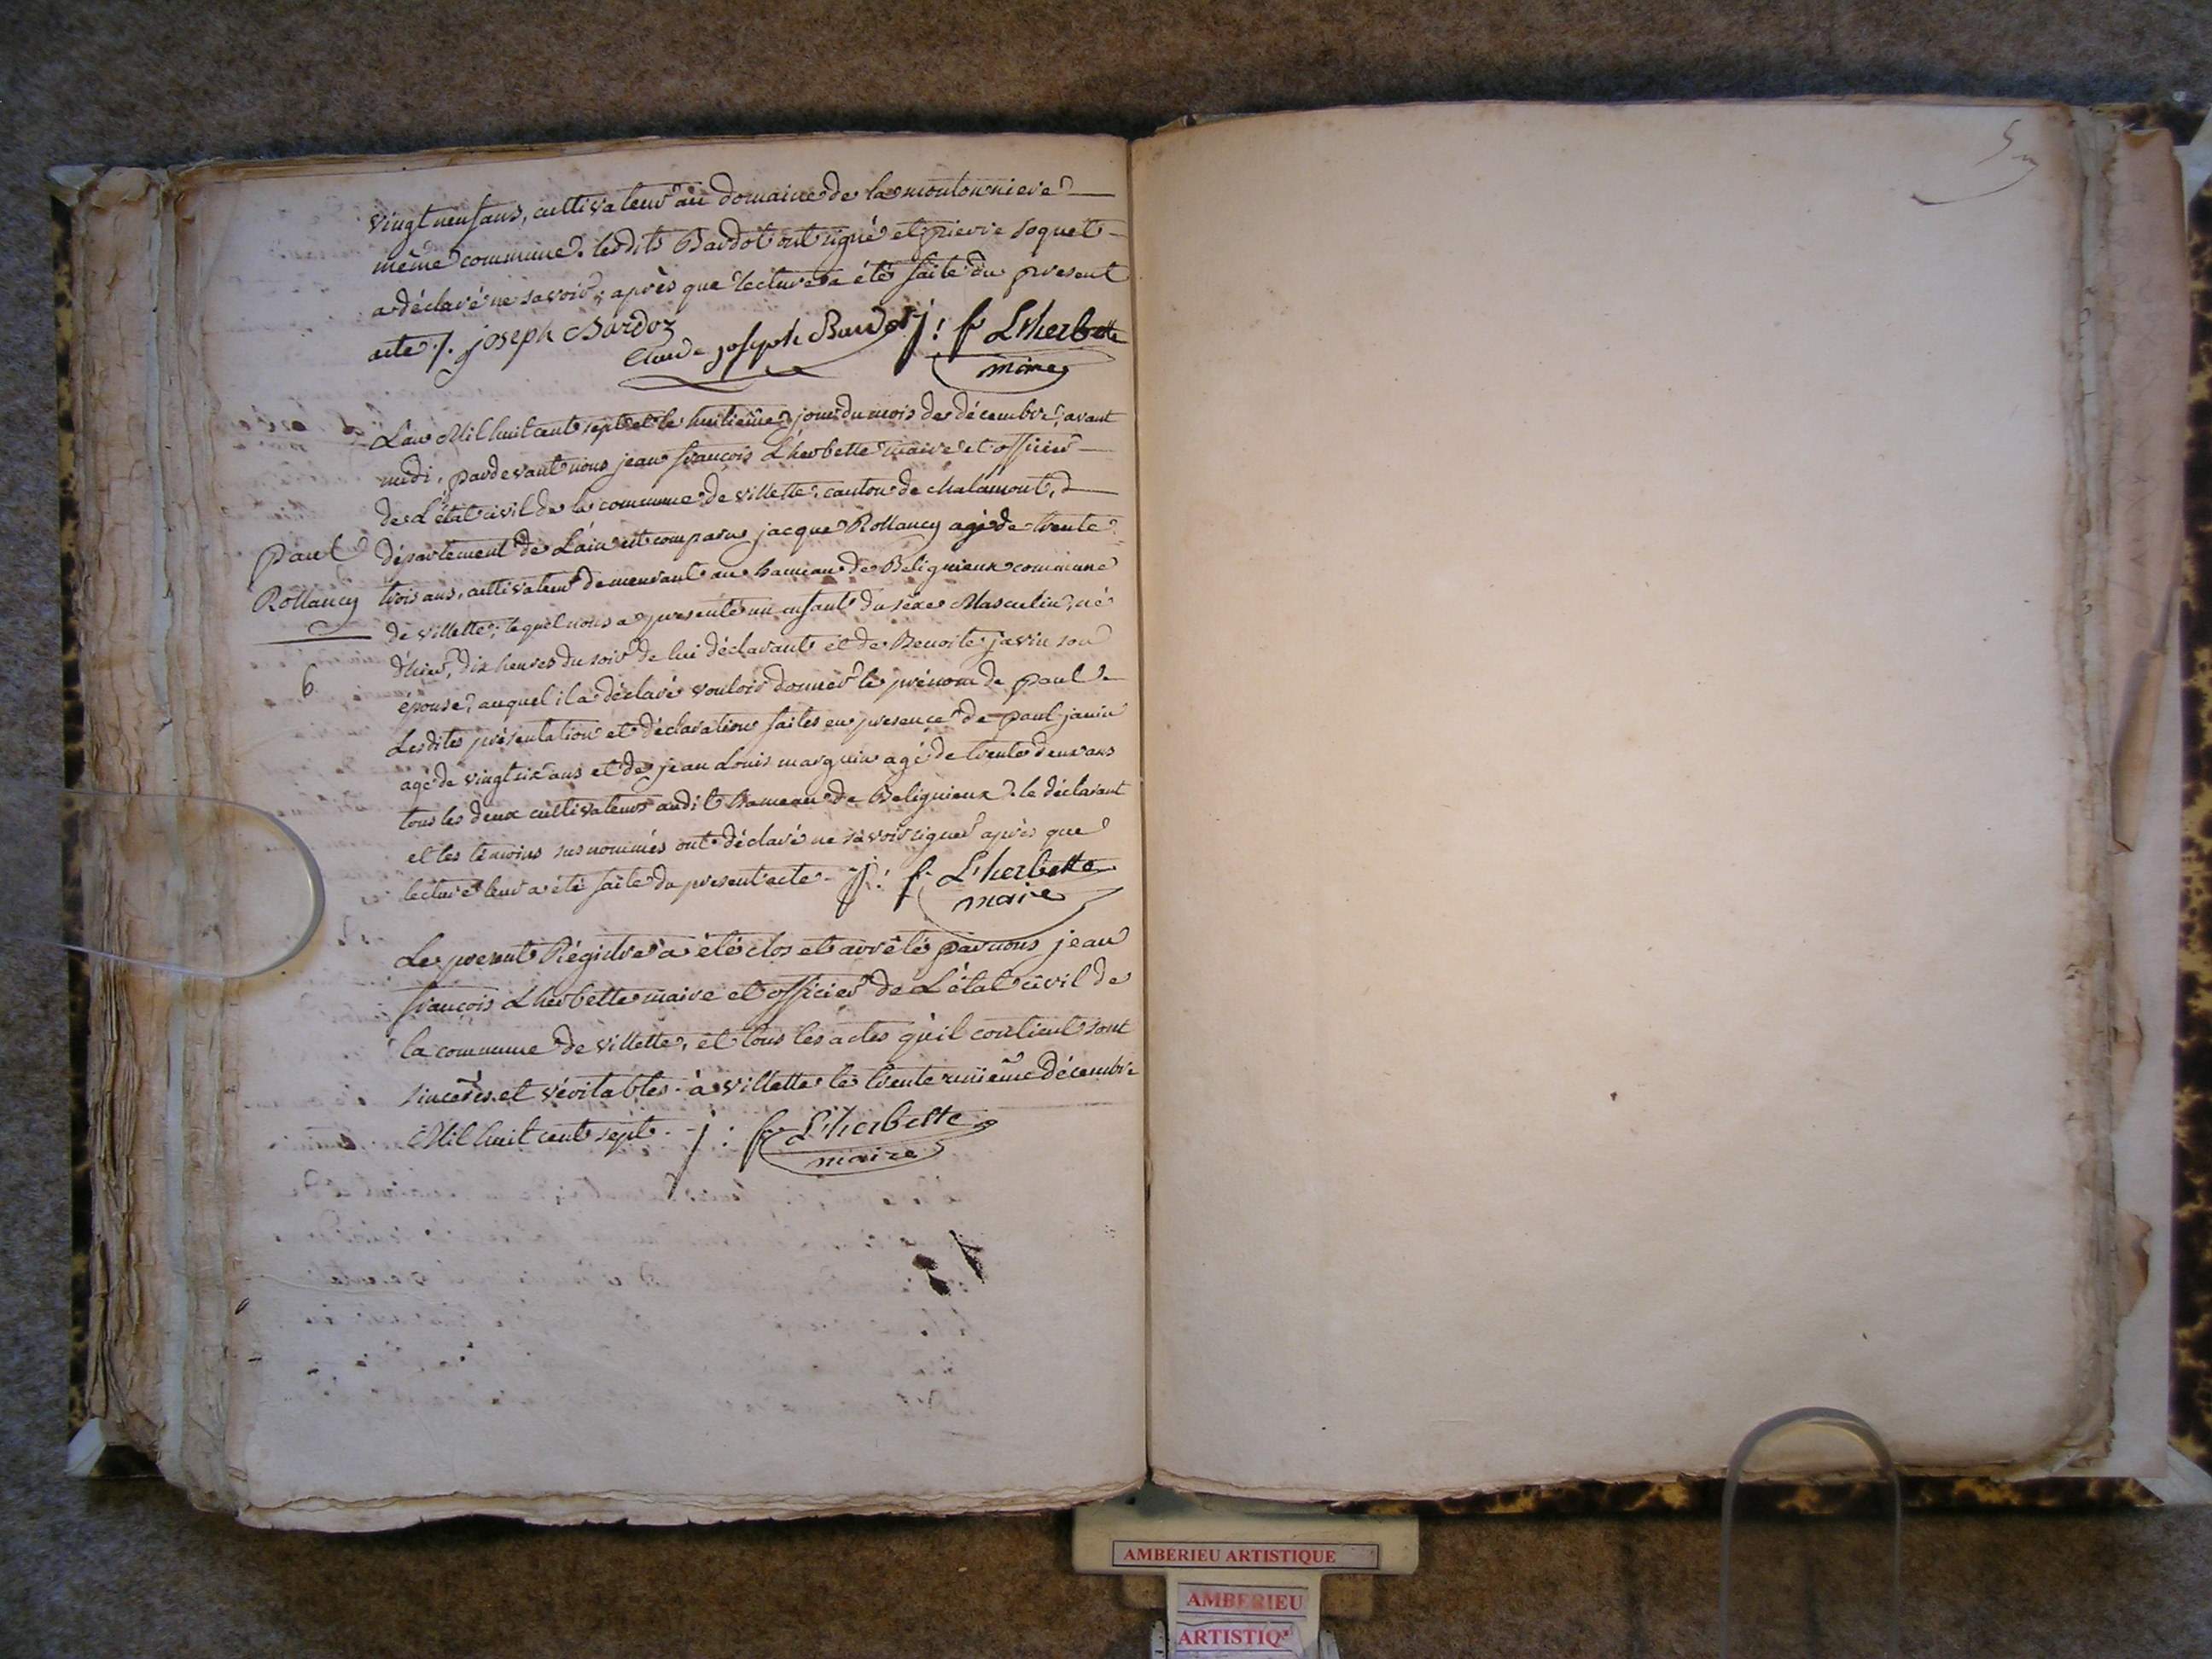 5
vingt neuf ans, cultivateur au domaine de la moutonniere
même commune. lesdits Bardot ont signé et pierre soquet
a déclaré ne savoir, après que lecture a été faite du present
acte ./. joseph Bardoz
Claude joseph Bardot j: f Lherbette
maire
L'an Mil huit cent sept et le huitième jour du mois de décembre, avant
midi, pardevant nous jean françois Lherbette maire et officier
de L'état civil de la commune de villette, canton de chalamont,
Paul
département de L'ain est comparu jacque Rollancy agé de trente
Rollancy
trois ans, cultivateur demeurant au hameau de Beligneux commune
de villette, lequel nous a presenté un enfant du sexe Masculin, né
6
d'hier, dix heures du soir de lui déclarant et de Benoite javin son
épouse, auquel il a déclaré vouloir donner le prénom de paul
Lesdites présentation et déclaration faites en presence de paul janin
agé de vingt six ans et de jean Louis marguin agé de trente deux ans
tous les deux cultivateurs audit hameau de Beligneux. le déclarant
et les témoins susnommés ont déclaré ne savoir signer après que
lecture leur a été faite du present acte - j: f. L'herbette
maire
Le present Régistre a été clos et arrêté par nous jean
françois Lherbette maire et officier de L'état civil de
la commune de villette, et tous les actes qu'il contient sont
sincères et véritables. à villette le trente unième décembre
Mil huit cent sept. - j: f L'herbette
maire
AMBERIEU ARTISTIQUE
AMBERIEU
ARTISTIQ